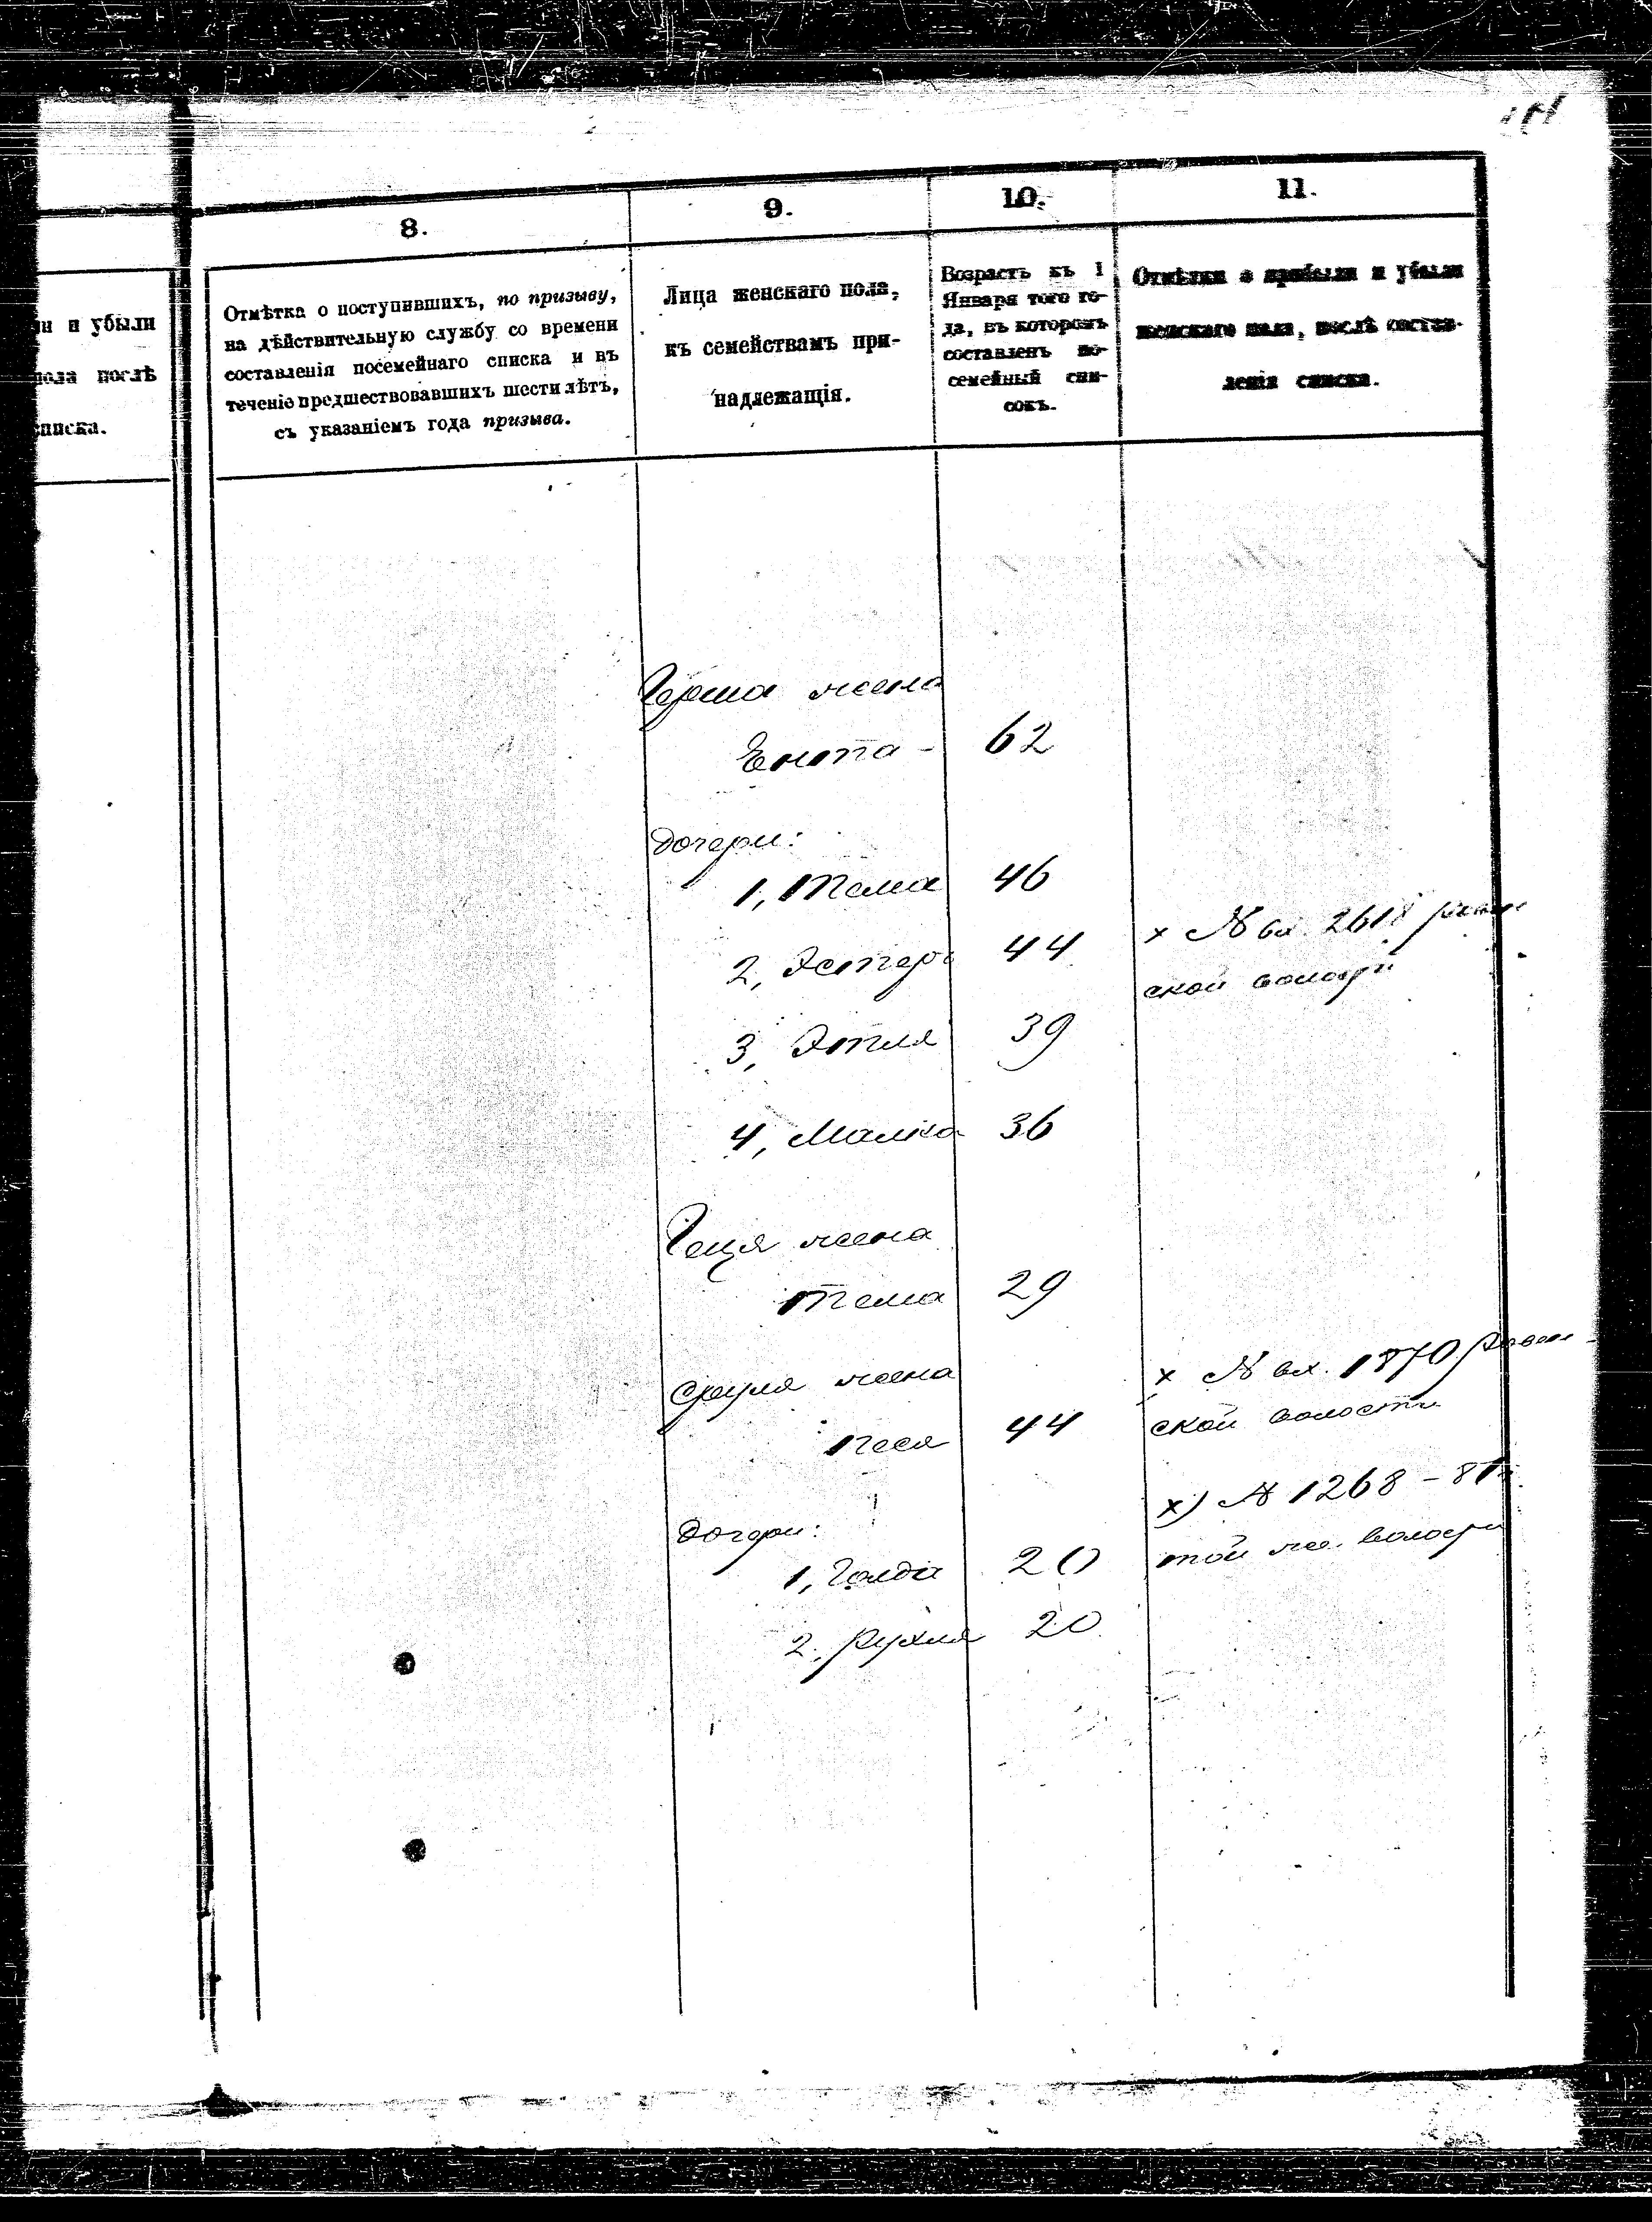 8.
9.
10.
11.
и убыли
послѣ
списка.
Отмѣтка о поступившихъ, по призыву,
на дѣйствительную службу со времени
составленія посемейнаго списка и въ
теченіе предшествовавшихъ шести лѣтъ,
съ указаніемъ года призыва.
Лица женскаго пола,
къ семействамъ при-
надлежащія.
Возрастъ къ 1
Января того го-
да, въ которомъ
составленъ по-
семейный спи-
сокъ.
Отмѣтки о прибыли и убыли
женскаго пола, послѣ состав-
ленія списка.
Герша жена
Ента - 62
Дочери:
1, Тема 46
2, Эстеръ 44
х № вх. 2618
ской волости
3, Этля 39
4, Малка 36
Геця жена
Тема 29
Сруля жена
х № вх. 1870
Песя 44
ской волости
х) № 1268 - 81
Дочери:
1, Голда 20
той же волости
2, Рухля 20